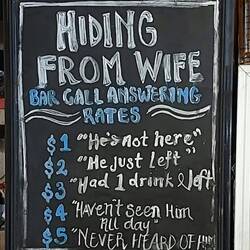 HIDING
FROM WIFE
BAR CALL ANSWERING
RATES
$1 "He's not here"
$2 "He just left"
$3 "Had 1 drink & left
$4 "HAVEN'T SEEN HIM
All day"
$5 "NEVER HEARD OF HIM